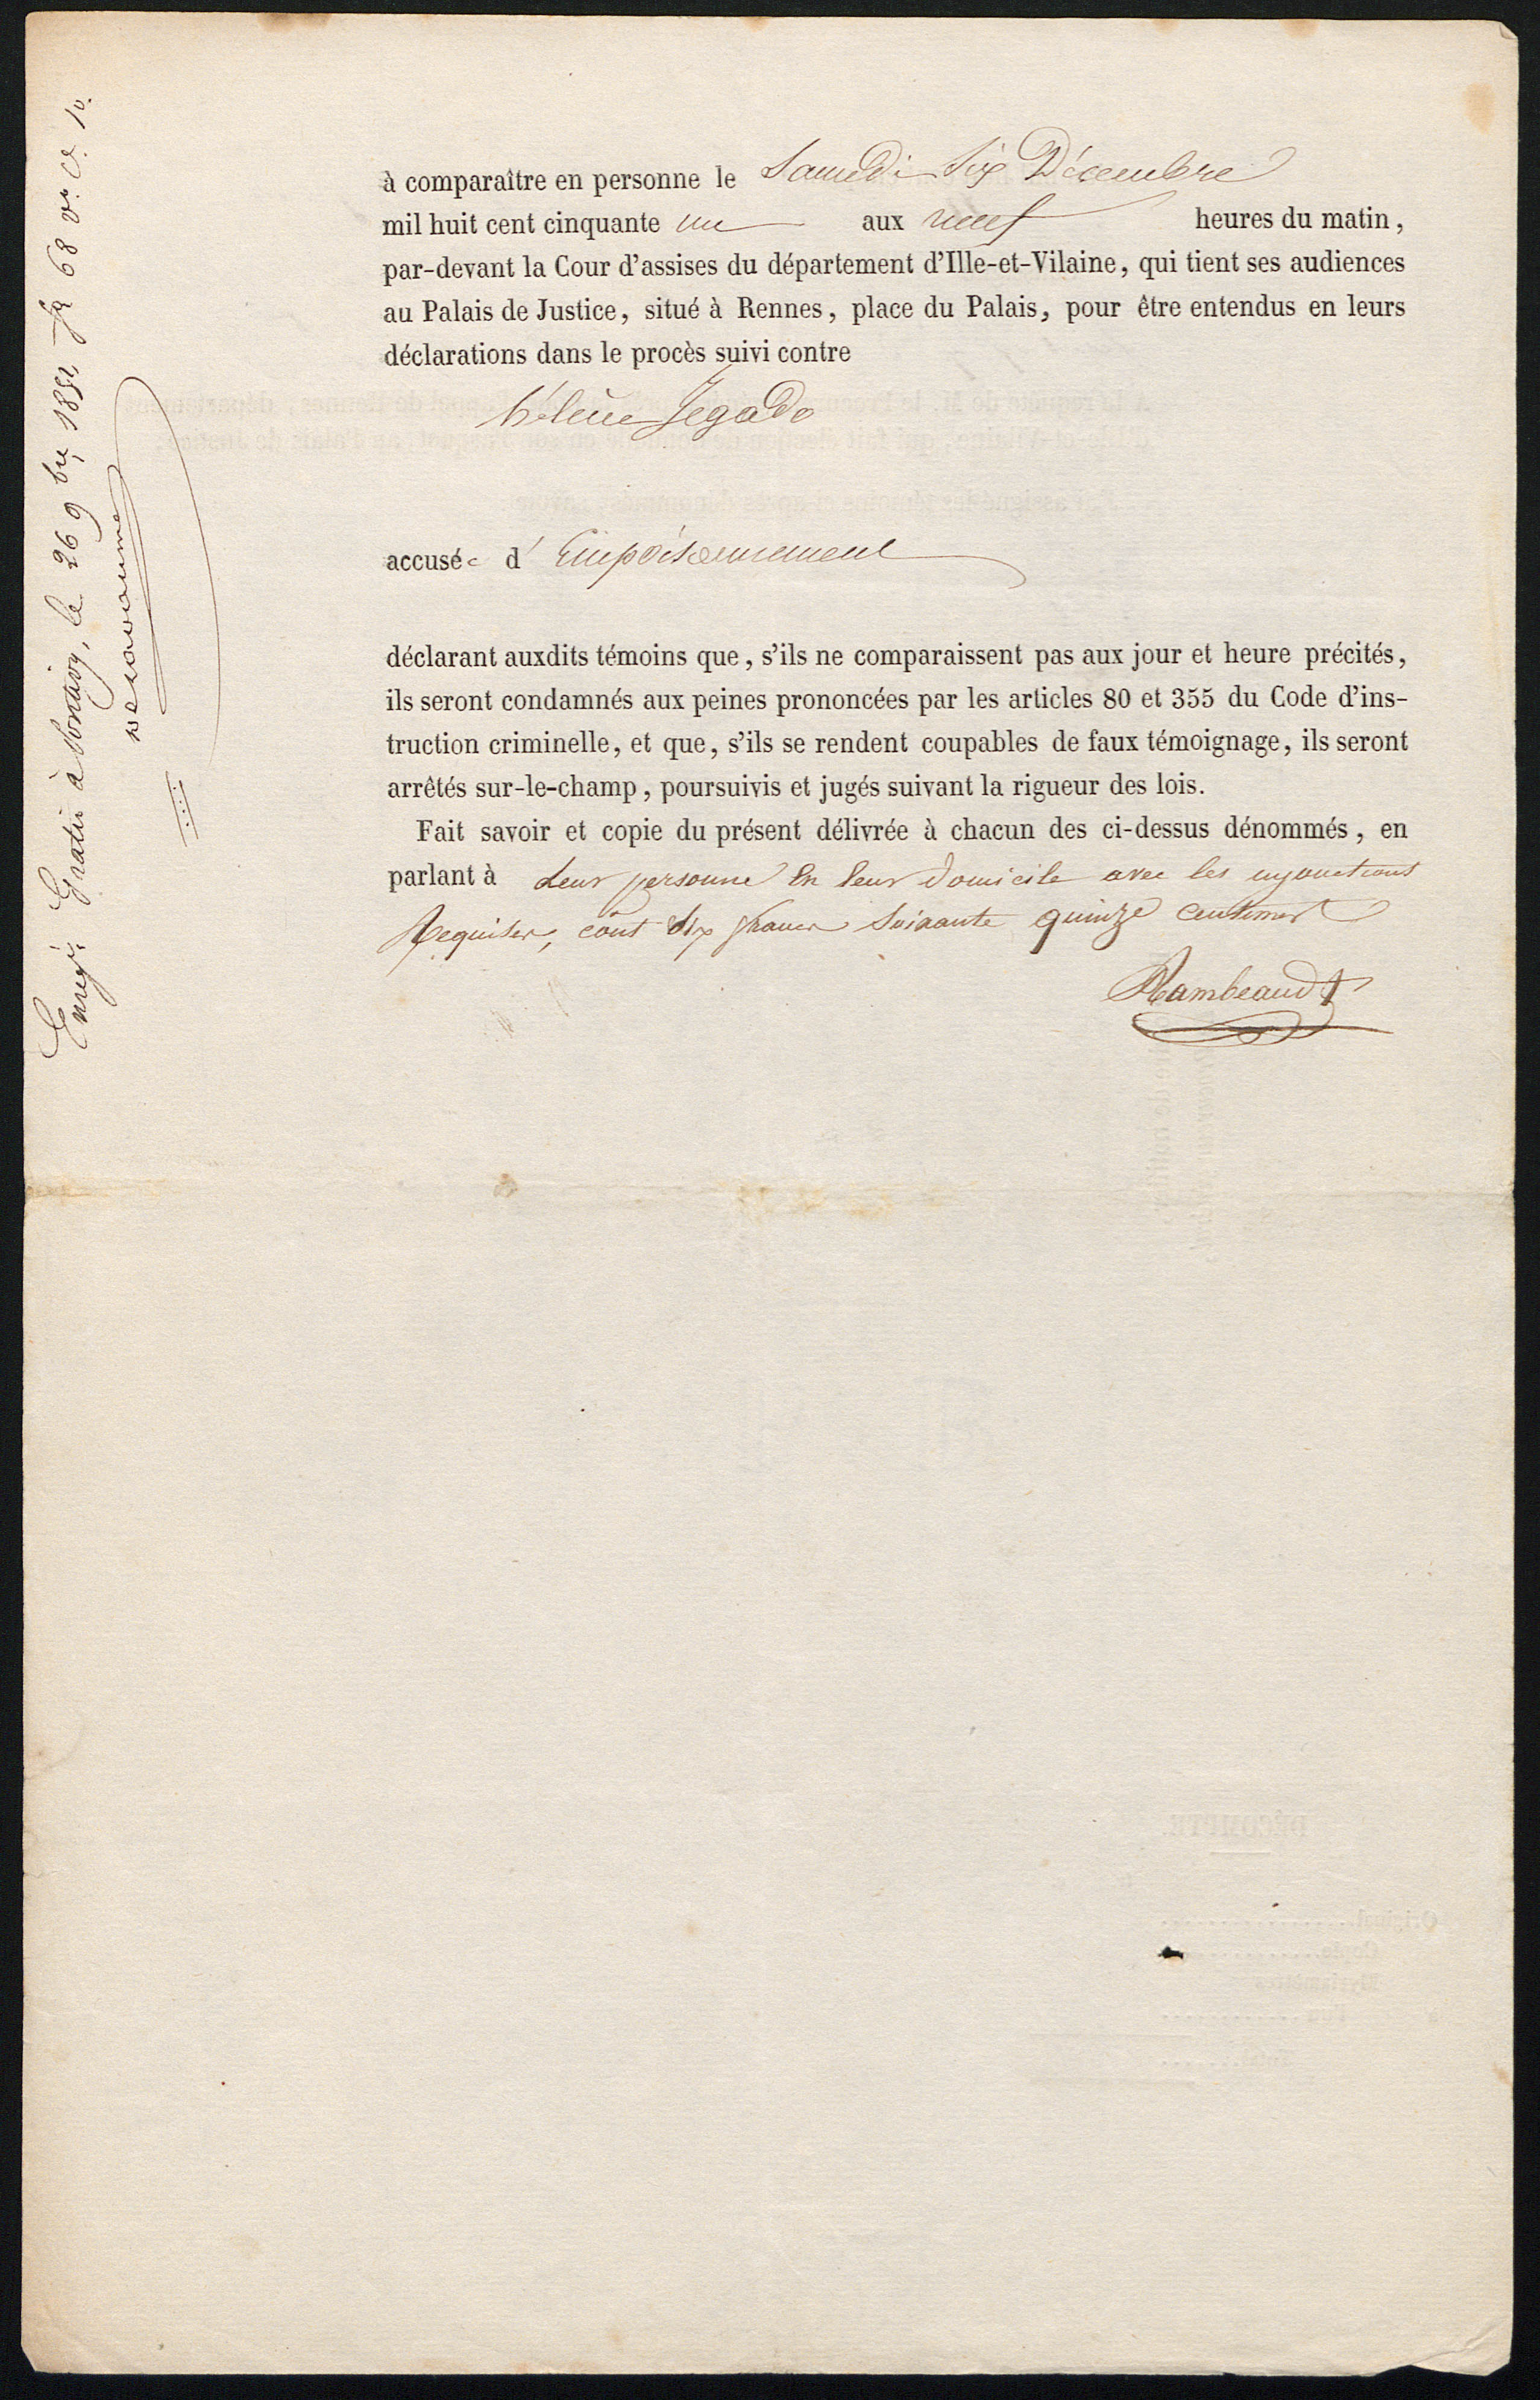 à comparaître en personne le Samedi Six Décembre
mil huit cent cinquante un aux neuf heures du matin,
par-devant la Cour d'assises du département d'Ille-et-Vilaine, qui tient ses audiences
au Palais de Justice, situé à Rennes, place du Palais, pour être entendus en leurs
déclarations dans le procès suivi contre
hélène Jegado
accusée d'Empoisonnement
déclarant auxdits témoins que, s'ils ne comparaissent pas aux jour et heure précités,
ils seront condamnés aux peines prononcées par les articles 80 et 355 du Code d'ins-
truction criminelle, et que, s'ils se rendent coupables de faux témoignage, ils seront
arrêtés sur-le-champ, poursuivis et jugés suivant la rigueur des lois.
Fait savoir et copie du présent délivrée à chacun des ci-dessus dénommés, en
parlant à leur personne en leur domicile avec les injonctions
Requises, coût dix francs soixante quinze centimes
Rambeaud
Enregé Gratis à Pontivy, le 26 9bre 1851, f° 68 v° C. 10.